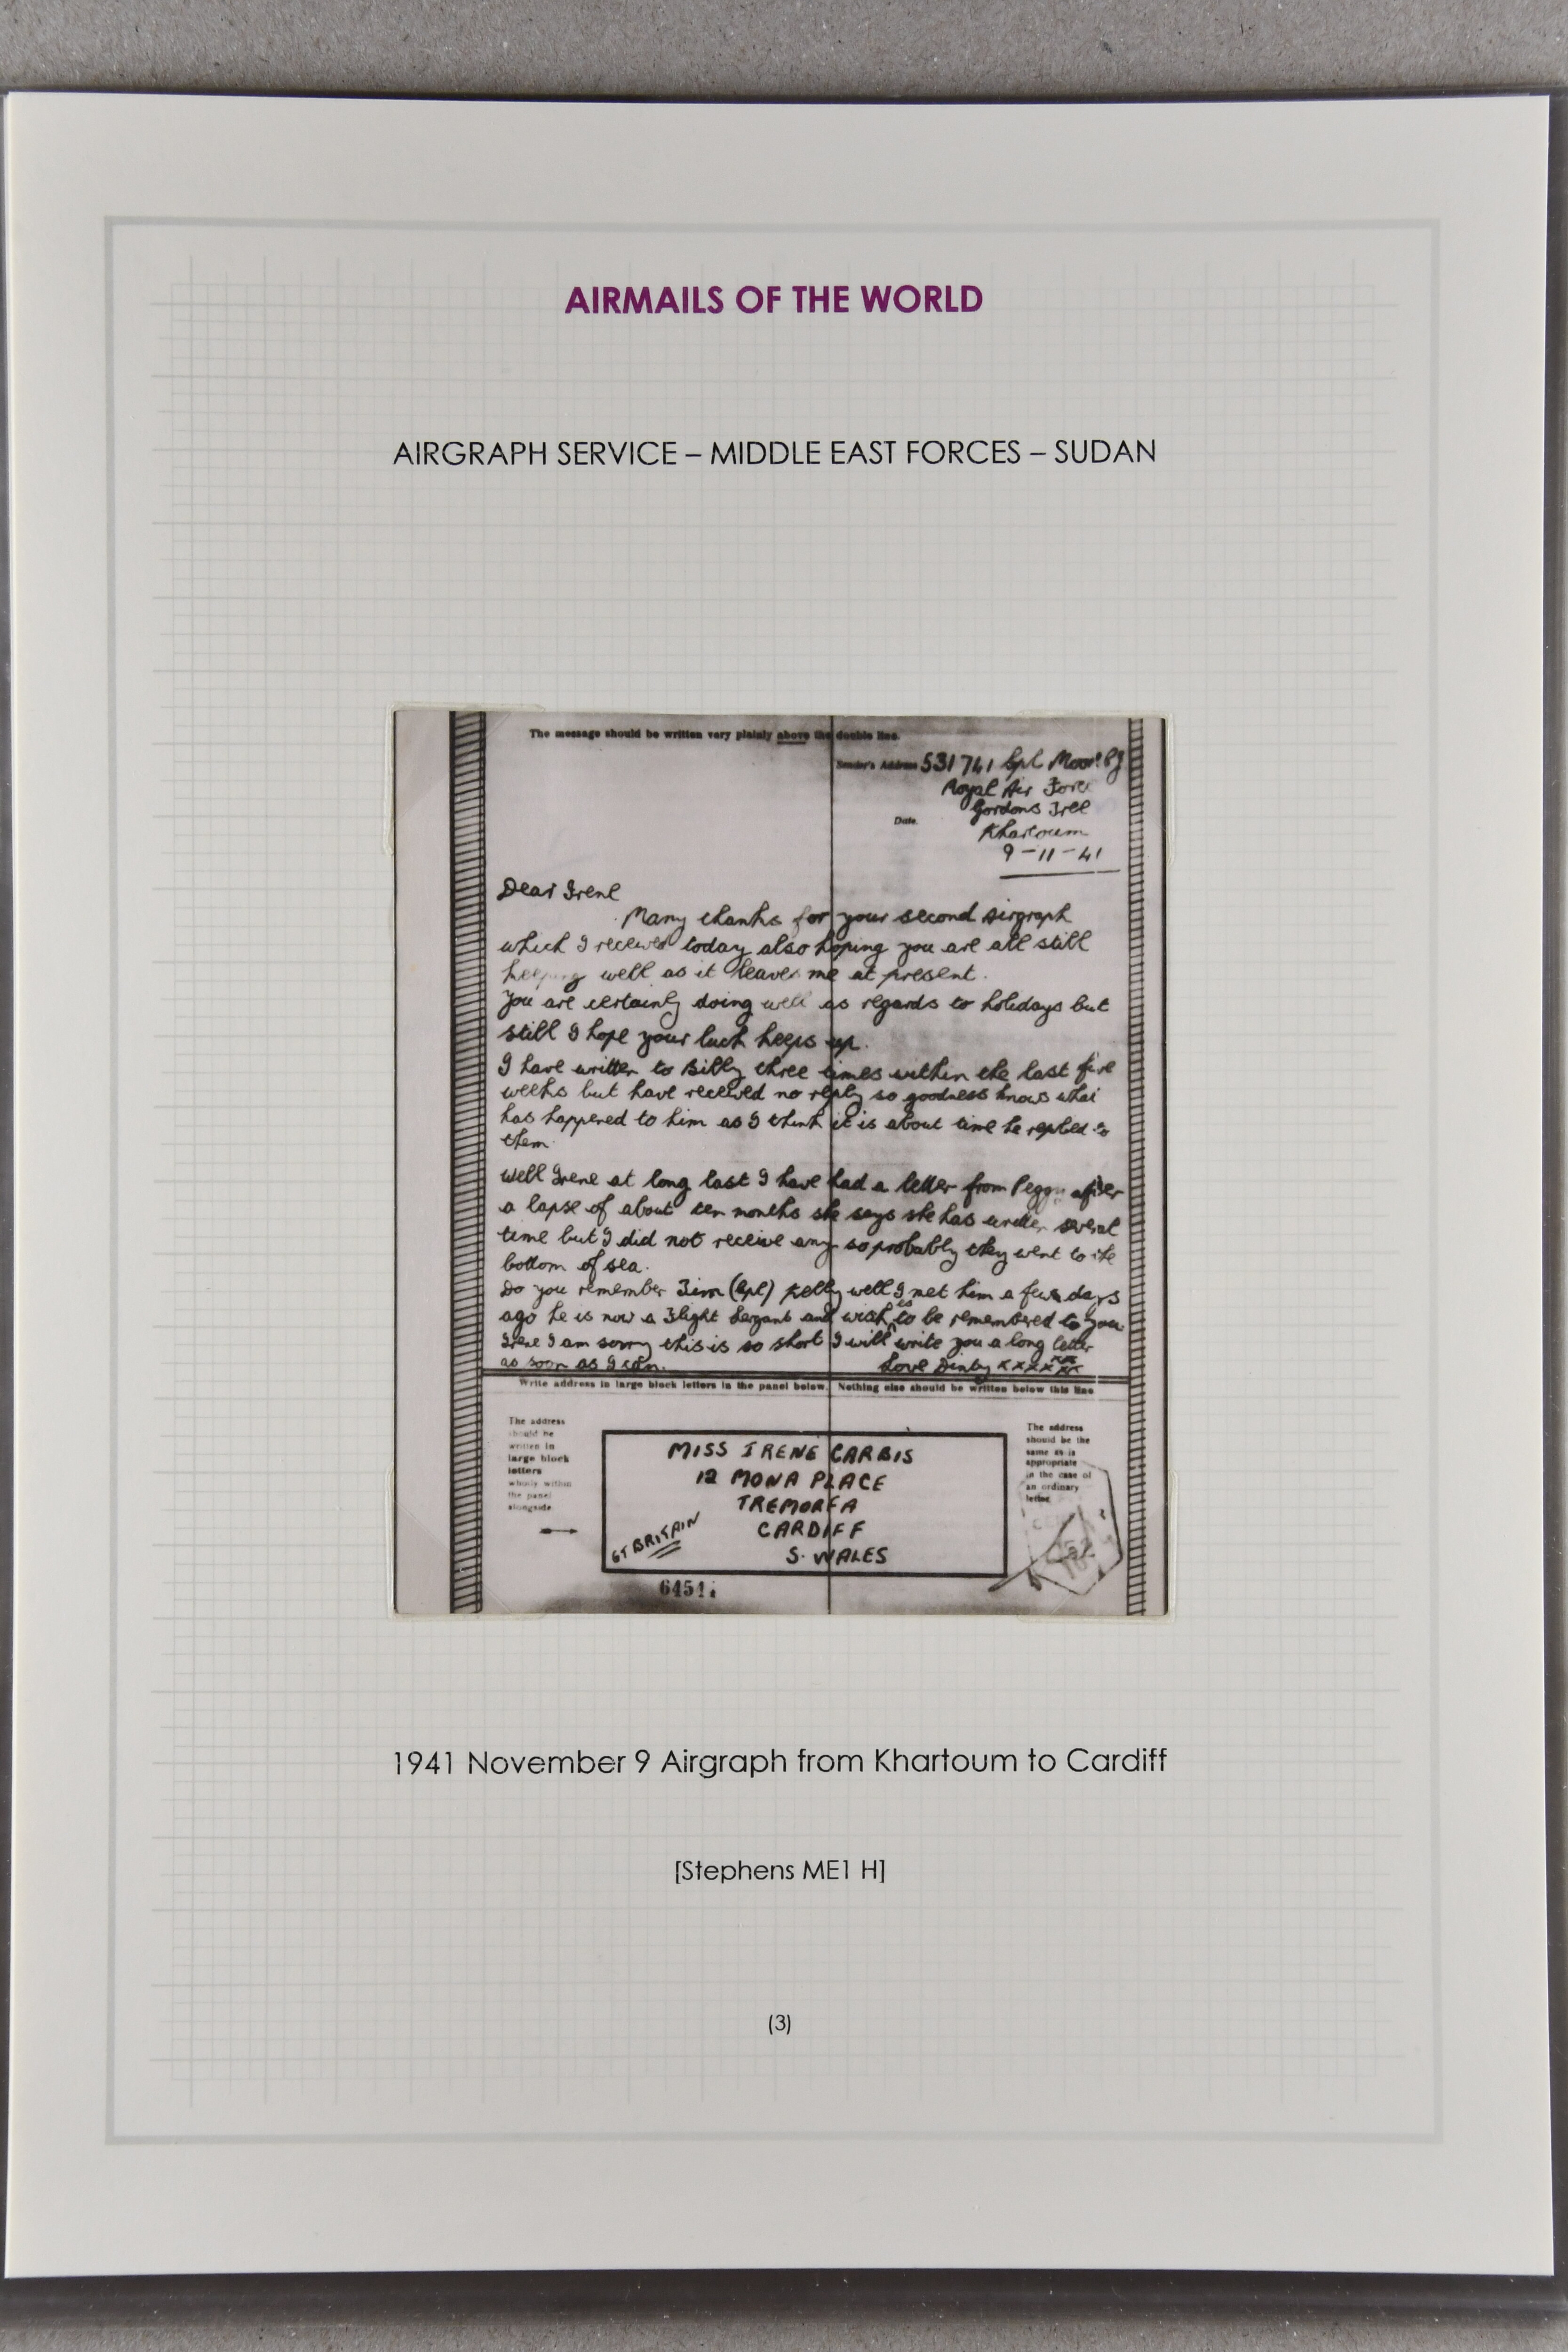 AIRMAILS OF THE WORLD
AIRGRAPH SERVICE – MIDDLE EAST FORCES – SUDAN
The message should be written very plainly above the double line.
Sender's Address 531741 Cpl Moor
Royal Air Force
Gordons Tree
Date Khartoum
9-11-41
Dear Irene
Many thanks for your second airgraph
which I received today also hoping you are all still
keeping well as it leaves me at present.
You are certainly doing well as regards to holidays but
still I hope your luck keeps up.
I have written to Billy three times within the last five
weeks but have received no reply so goodness knows what
has happened to him as I think it is about time he replied to
them
Well Irene at long last I have had a letter from Peggy after
a lapse of about ten months she says she has written several
time but I did not receive any so probably they went to the
bottom of sea.
Do you remember Jim (Cpl) Kelly well I met him a few days
ago he is now a Flight Sergant and wish is to be remembered to you
Irene I am sorry this is so short I will write you a long letter
as soon as I can. Love xxxxxxxx
Write address in large block letters in the panel below. Nothing else should be written below this line
The address
should be
written in
large block
letters
wholly within
the panel
alongside
MISS IRENE CARBIS
12 MONA PLACE
TREMORFA
CARDIFF
S. WALES
GT BRITAIN
The address
should be the
same as is
appropriate
in the case of
an ordinary
letter
6451
1941 November 9 Airgraph from Khartoum to Cardiff
[Stephens ME1 H]
(3)